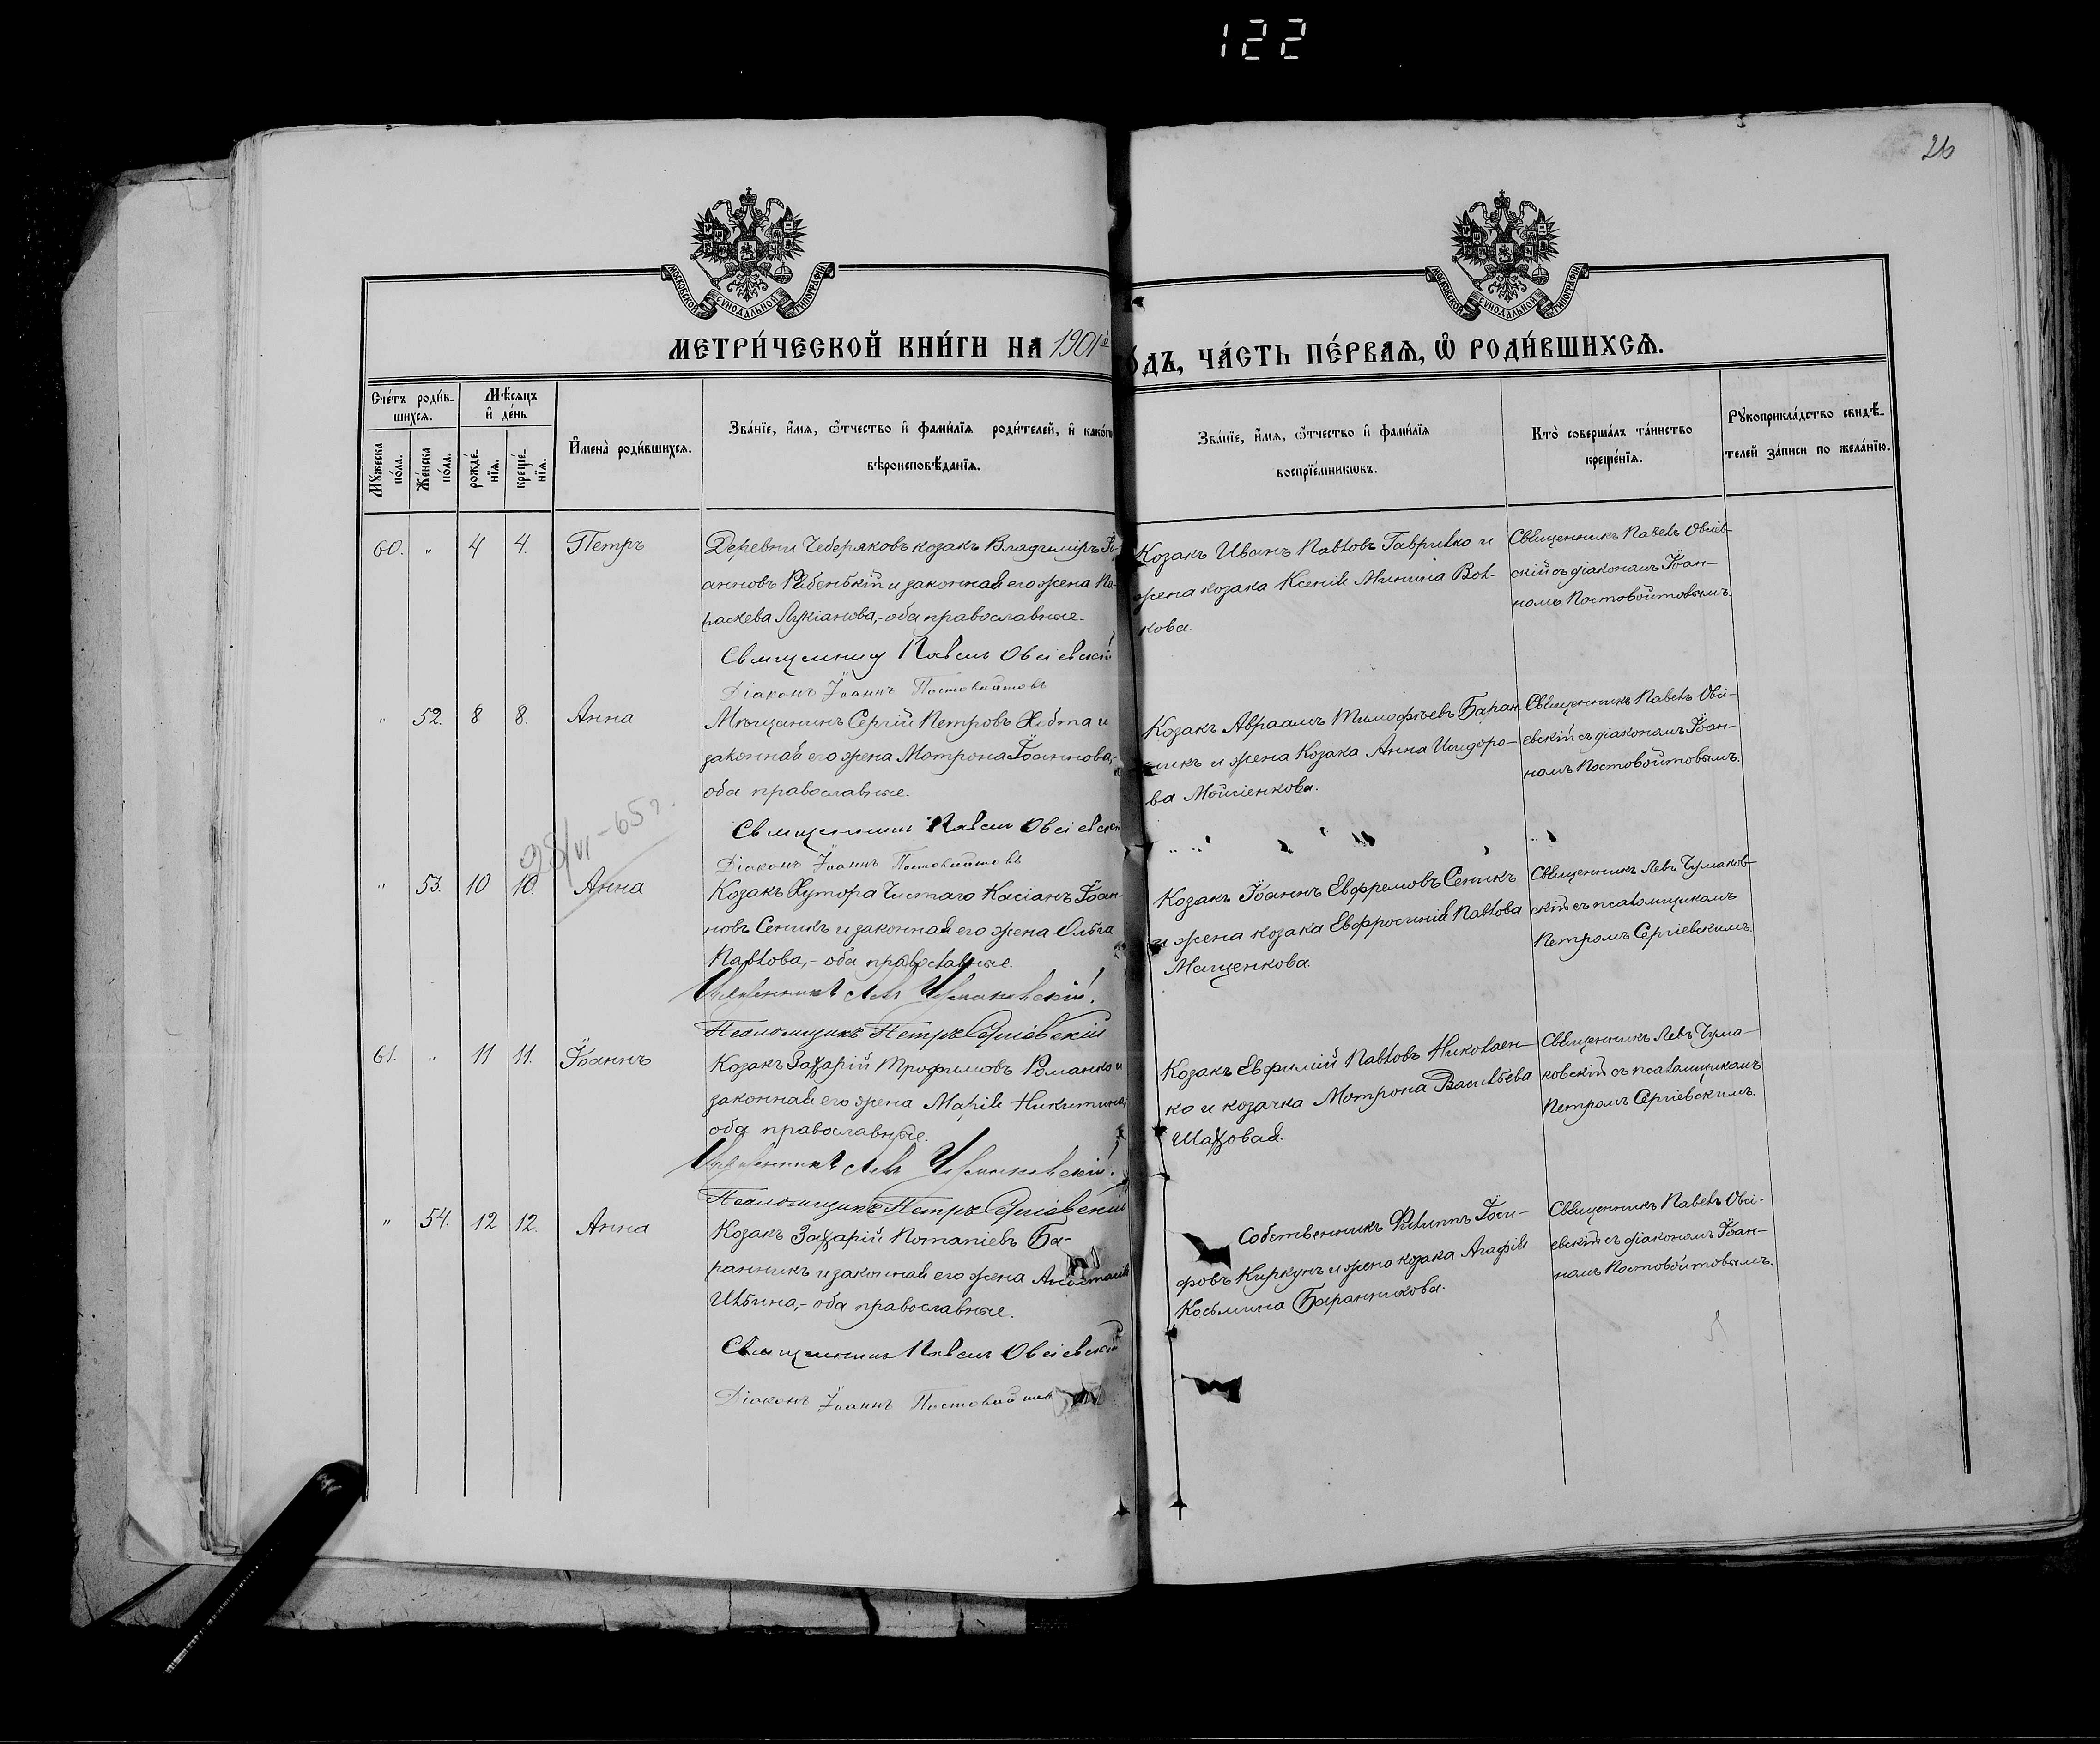 122
26
МОСКОВСКОЙ СѴНОДАЛЬНОЙ ТИПОГРАФІИ
МОСКОВСКОЙ СѴНОДАЛЬНОЙ ТИПОГРАФІИ
МЕТРИ́ЧЕСКОЙ КНИ́ГИ НА 1901й
О́ДЪ, ЧА́СТЬ ПЕ́РВАѦ, Ѡ҆ РОДИ́ВШИХСѦ.
Сче́тъ роди́в-
шихсѧ.
Мꙋ́жеска по́ла.
Же́нска по́ла.
Мѣ́сѧцъ
и҆ де́нь
рожде́-
нїѧ.
креще́-
нїѧ.
И҆мена̀ роди́вшихсѧ.
Зва́нїе, и҆́мѧ, ѻ҆́тчество и҆ фами́лїѧ роди́телей, и҆ како́гѡ
вѣроисповѣ́данїѧ.
Зва́нїе, и҆́мѧ, ѻ҆́тчество и҆ фами́лїѧ
воспрїе́мникѡвъ.
Кто̀ соверша́лъ та́инство
креще́нїѧ.
Рꙋкоприкла́дство свидѣ́-
телей за́писи по жела́нїю.
60. " 4 4. Петръ
Деревни Чеберяковъ козакъ Владиміръ Іо-
анновъ Рябенькій и законная его жена Па-
раскева Лукіанова,- оба православные.
Священник Павелъ Овсіевскій
Діаконъ Іоаннъ Постовойтовъ
Козакъ Иванъ Павловъ Гаврилко и
жена козака Ксенія Минина Вол-
кова.
Священникъ Павелъ Овсіев-
скій съ діакономъ Іоан-
номъ Постовойтовымъ.
" 52. 8 8. Анна
Мѣщанинъ Сергій Петровъ Хобта и
законная его жена Мотрона Іоаннова,-
оба православные.
Священник Павелъ Овсіевскій
Діаконъ Іоаннъ Постовойтовъ
Козакъ Авраамъ Тимофѣевъ Баран-
никъ и жена козака Анна Исидоро-
ва Мойсіенкова.
Священникъ Павелъ Овсі-
евскій съ діакономъ Іоан-
номъ Постовойтовымъ.
28/VI-65г.
" 53. 10 10. Анна
Козакъ Хутора Чистаго Касіанъ Іоан-
новъ Сеникъ и законная его жена Ольга
Павлова,- оба православные.
Священникъ Левъ Чумаковскій
Псаломщикъ Петръ Сергіевскій
Козакъ Іоаннъ Евфремовъ Сеникъ
и жена козака Евфросинія Павлова
Мащенкова.
Священникъ Левъ Чумаков-
скій съ псаломщикомъ
Петромъ Сергіевскимъ.
61. " 11 11. Іоаннъ
Козакъ Захарій Трофимовъ Романко и
законная его жена Марія Никитина,
оба православные.
Священникъ Левъ Чумаковскій
Псаломщикъ Петръ Сергіевскій
Козакъ Евфимій Павловъ Николаен-
ко и козачка Мотрона Васильева
Шаховая.
Священникъ Левъ Чума-
ковскій съ псаломщикомъ
Петромъ Сергіевскимъ.
" 54. 12 12. Анна
Козакъ Захарій Потапіевъ Ба-
ранникъ и законная его жена Анастасія
Ильина,- оба православные.
Священник Павелъ Овсіевскій
Діаконъ Іоаннъ Постовойтов
Собственникъ Филиппъ Іоси-
фовъ Киркунъ и жена козака Агафія
Косьмина Баранникова.
Священникъ Павелъ Овсі-
евскій съ діакономъ Іоан-
номъ Постовойтовымъ.